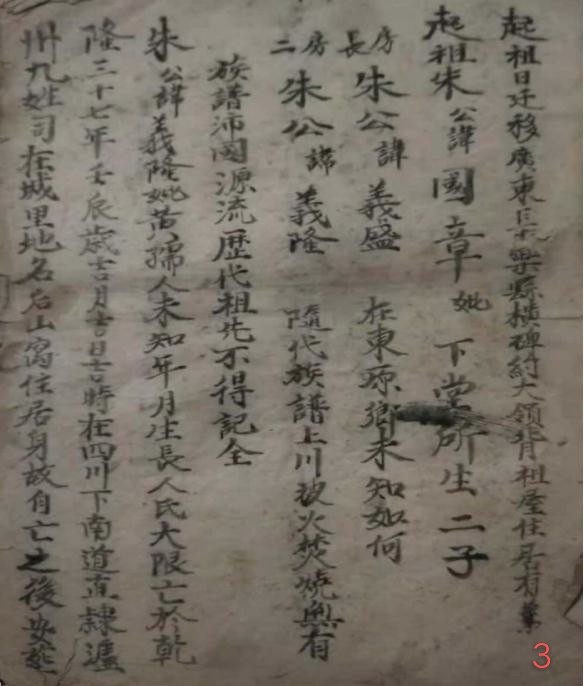 起祖日迁移廣東長樂縣橫碑約大領背祖屋住居有業
起祖朱公諱國章妣 下堂所生二子
長房朱公諱義盛 在東源鄉未知如何
二房朱公諱義隆 隨代族譜上川被火焚燒無有
族譜沛國源流歷代祖先不得記全
朱公諱義隆妣黃孺人未知年月生長人民大限亡於乾
隆三十七年壬辰歲吉月吉日吉時在四川下南道直隸瀘
州九姓司在城里地名后山窩住居身故自亡之後安葬
3